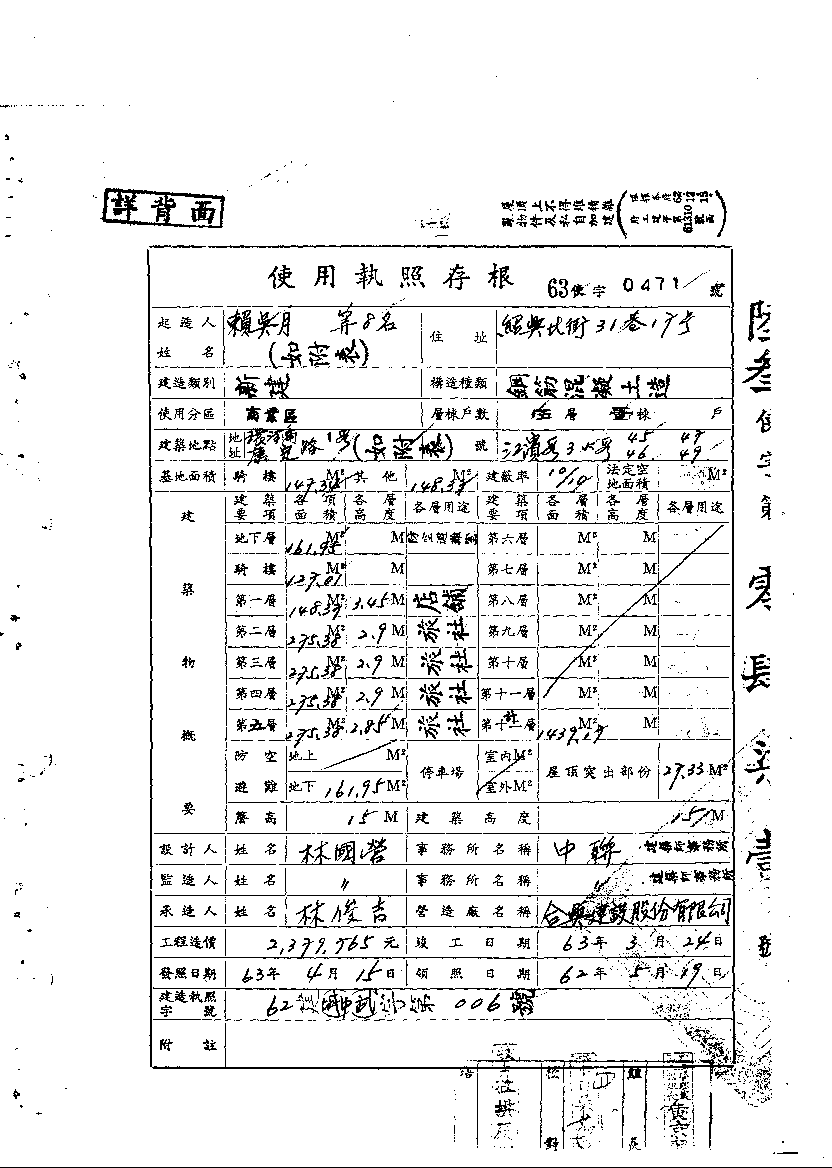 詳背面
屋頂上不得堆積雜
物件及私自加建
使用執照存根 63使字 0471 號
起造人姓名 賴吳月 等8名 (如附表) 住址 紹興北街31巷17号
建造類別 新建 構造種類 鋼筋混凝土造
使用分區 商業區 層棟戶數 伍層 壹棟 戶
建築地點 地址 環河南 路1号(如附表)號 江濱号35号 45 46 47 49
基地面積 騎樓 M² 其他 148.39 M² 建蔽率 10/10 法定空地面積 M²
建築物概要
建築要項 各項面積 各層高度 各層用途 建築要項 各層面積 各層高度 各層用途
地下層 161.95 M² M 第六層 M² M
騎樓 127.01 M² M 第七層 M² M
第一層 148.39 M² 3.45 M 店舖 第八層 M² M
第二層 275.38 M² 2.9 M 旅社 第九層 M² M
第三層 275.38 M² 2.9 M 旅社 第十層 M² M
第四層 275.38 M² 2.9 M 旅社 第十一層 M² M
第五層 275.38 M² 2.85 M 旅社 計 1439.17 M² M
防空避難 地上 M² 停車場 室內 M² 屋頂突出部份 27.33 M²
地下 161.95 M² 室外 M²
簷高 15 M 建築高度 15 M
設計人 姓名 林國營 事務所名稱 中聯 建築師事務所
監造人 姓名 〃 事務所名稱 〃 建築師事務所
承造人 姓名 林俊吉 營造廠名稱 合興建設股份有限公司
工程造價 2,379,765 元 竣工日期 63年3月24日
發照日期 63年4月15日 領照日期 62年5月19日
建造執照字號 62 006號
附註
陸叁使字第零肆柒壹號